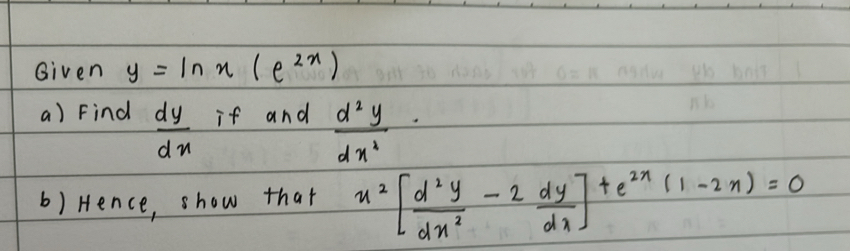 Given y = ln x (e^{2x})
a) Find dy/dx if and d²y/dx².
b) Hence, show that x² [d²y/dx² - 2 dy/dx] + e^{2x} (1 - 2x) = 0